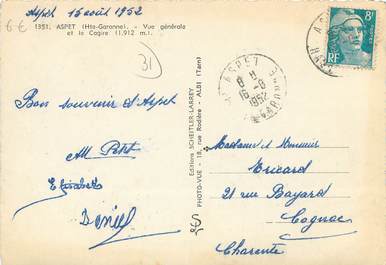 Aspet 15 août 1952
6€
1351. ASPET (Hte-Garonne). - Vue générale
et le Cagire (1.912 m.).
31
Bon souvenir d'Aspet
Petit
Elisabeth
Daniel
Editions SCHEITLER-LARREY
PHOTO-VUE - 18, rue Rodière - ALBI (Tarn)
ASPET
8 H
16 - 8
1952
GARONNE
8F
RF
Madame et Monsieur
Tricard
21 rue Bayard
Cognac
Charente